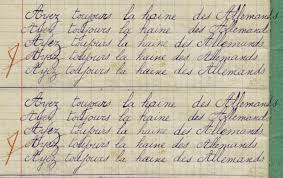 Ayez toujours la haine des Allemands
Ayez toujours la haine des Allemands
Ayez toujours la haine des Allemands
Ayez toujours la haine des Allemands
Ayez toujours la haine des Allemands
Ayez toujours la haine des Allemands
Ayez toujours la haine des Allemands
Ayez toujours la haine des Allemands
Ayez toujours la haine des Allemands
Ayez toujours la haine des Allemands